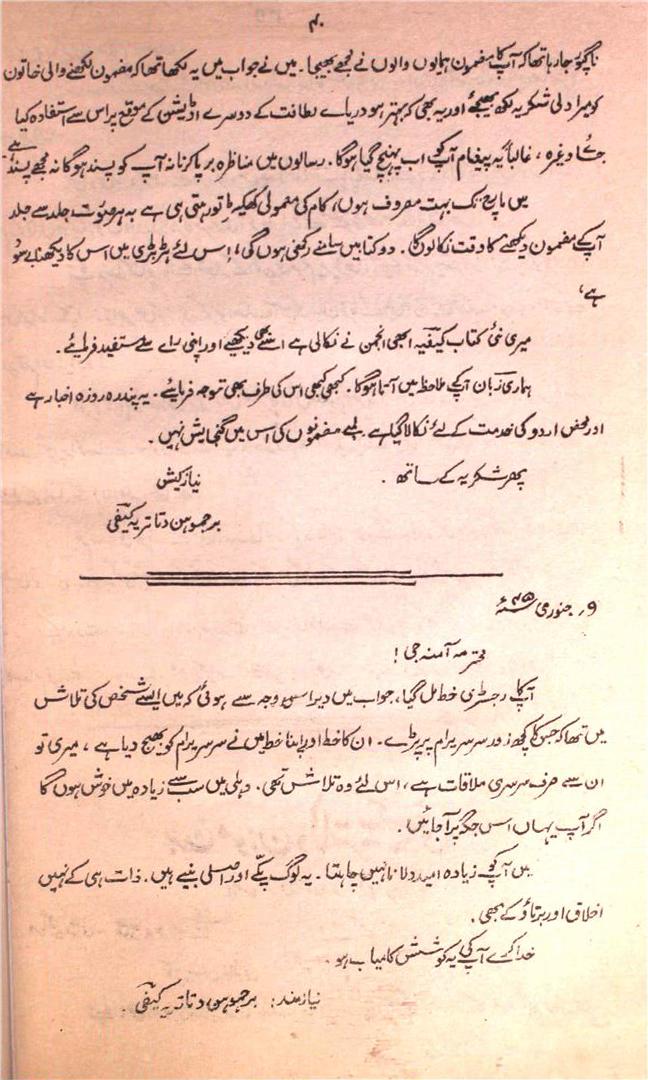 ۴۰
ناگپور جا رہا تھا کہ آپ کا مضمون ہمایوں والوں نے مجھے بھیجا۔ میں نے جواب میں یہ لکھا تھا کہ مضمون لکھنے والی خاتون
کو میرا دلی شکریہ لکھ بھیجئے اور یہ بھی کہ بہتر ہو دریاے لطافت کے دوسرے اڈیشن کے موقع پر اس سے استفادہ کیا
جائے وغیرہ، غالباً یہ پیغام آپ کو اب پہنچ گیا ہوگا۔ رسالوں میں مناظرہ برپا کرنا نہ آپ کو پسند ہوگا نہ مجھے پسند ہے
میں مارچ تک بہت مصروف ہوں، کام کی معمولی کھکھیڑ تو رہتی ہی ہے بہرصورت جلد سے جلد
آپ کے مضمون دیکھنے کا وقت نکالوں گا۔ دو کتابیں سامنے رکھنی ہوں گی، اس لئے ہڑبڑی میں اس کا دیکھنا بے سود
ہے،
میری نئی کتاب کیفیہ ابھی انجمن نے نکالی ہے اسے بھی دیکھیے اور اپنی راے سے مستفید فرمائیے۔
ہماری زبان آپ کے ملاحظہ میں آتا ہوگا۔ کبھی کبھی اس کی طرف بھی توجہ فرمایئے۔ یہ پندرہ روزہ اخبار ہے
اور محض اردو کی خدمت کے لئے نکالا گیا ہے۔ لمبے مضمونوں کی اس میں گنجایش نہیں۔
پھر شکریہ کے ساتھ۔ نیازکیش
برجموہن دتاتریہ کیفی
۹؍ جنوری ۴۵ء
محترمہ آمنہ جی!
آپ کا رجسٹری خط مل گیا، جواب میں دیر اس وجہ سے ہوئی کہ میں ایسے شخص کی تلاش
میں تھا کہ جس کا کچھ زور سر سریرام پر پڑے۔ ان کا خط اور اپنا خط میں نے سر سریرام کو بھیج دیا ہے، میری تو
ان سے صرف سرسری ملاقات ہے، اس لئے وہ تلاش تھی۔ دہلی میں سب سے زیادہ میں خوش ہوں گا
اگر آپ یہاں اس جگہ پر آجائیں۔
میں آپ کو زیادہ امید دلانا نہیں چاہتا۔ یہ لوگ پکّے اور اصلی بنیے ہیں۔ ذات ہی کے نہیں
اخلاق اور برتاؤ کے بھی۔
خدا کرے آپ کی یہ کوشش کامیاب ہو۔
نیازمند: برجموہن دتاتریہ کیفی۔